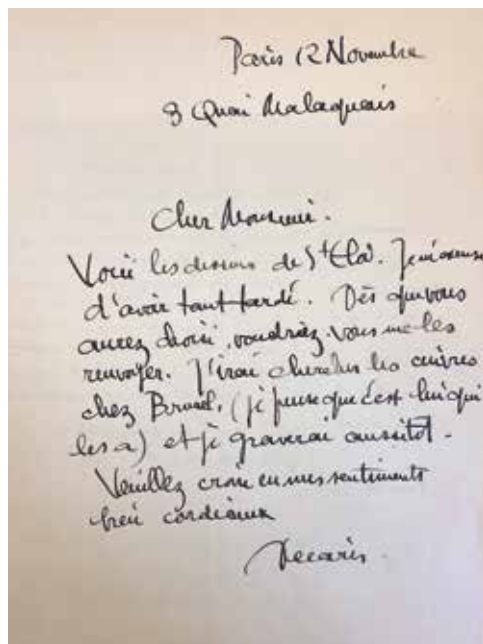 Paris 12 Novembre
3 Quai Malaquais
Cher Monsieur.
Voici les dessins de St Eloi. Je m'excuse
d'avoir tant tardé. Dès que vous
aurez choisi, voudriez-vous me les
renvoyer. J'irai chercher les cuivres
chez Brunel. (je pense que c'est lui qui
les a) et je graverai aussitot.
Veuillez croire en mes sentiments
bien cordiaux
Decaris.